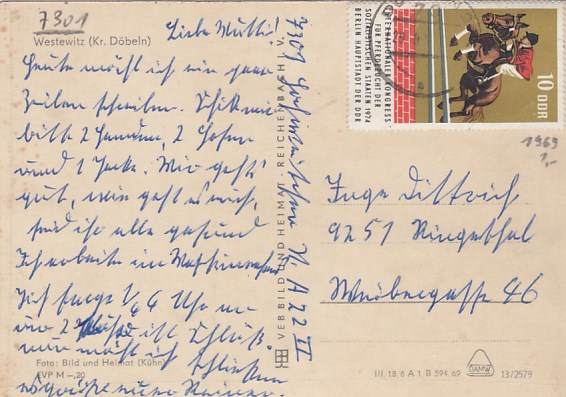 7301
Westewitz (Kr. Döbeln)
Liebe Mutti!
Heute möcht ich ein paar
Zeilen schreiben. Schick mir
bitte 2 Hemden, 2 Hosen
und 1 Jacke. Mir geht's
gut, wie geht es euch,
seid ihr alle gesund
Ich arbeite im
Ich fange Uhr an
ist Schluß.
nun möcht ich schließen
Foto: Bild und Heimat (Kühn)
EVP M –,20
VEB BILD UND HEIMAT REICHENBACH I. V.
7301
A 22 II
INTERNATIONALER KONGRESS
FÜR PFERDEZUCHT DER
SOZIALISTISCHEN STAATEN 1974
BERLIN HAUPTSTADT DER DDR
10 DDR
1969
1,-
Inge Dittrich
9251 Ringethal
46
III 18/6 A 1 B 594/69
DAMW
13/2579